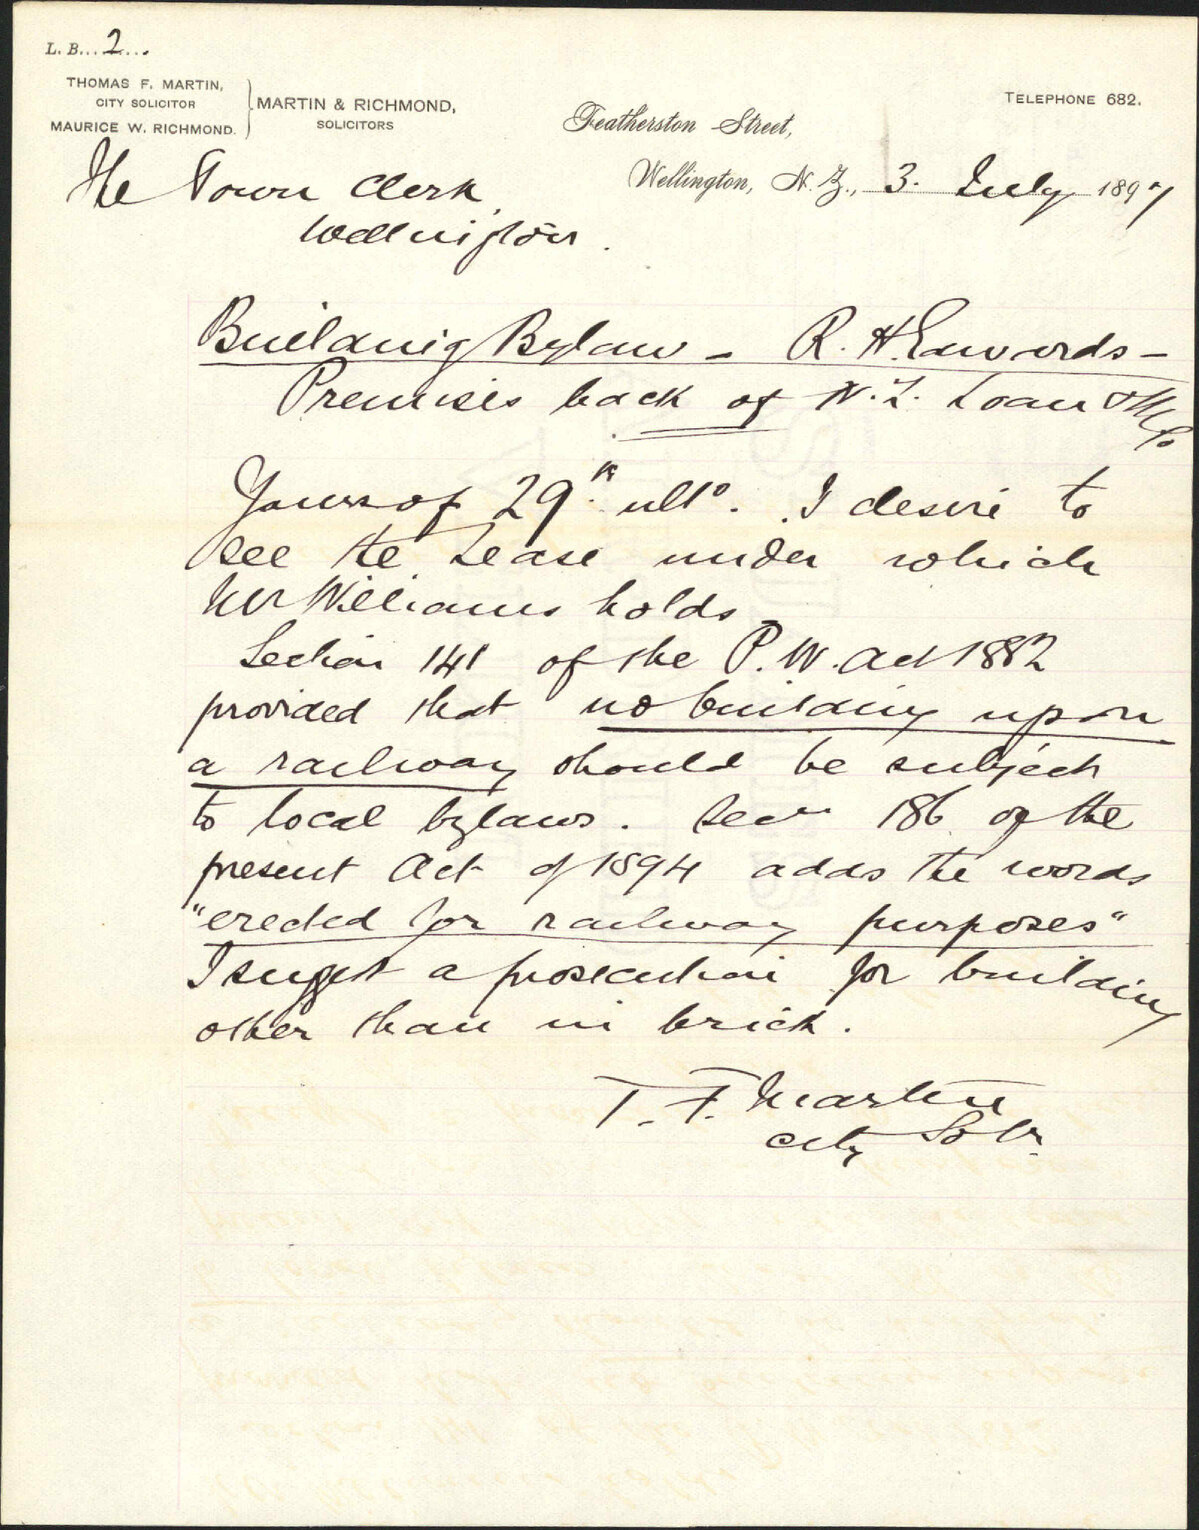 L. B... 2...
THOMAS F. MARTIN,
CITY SOLICITOR
MAURICE W. RICHMOND.
MARTIN & RICHMOND,
SOLICITORS
TELEPHONE 682.
Featherston Street,
Wellington, N. Z., 3. July 1897
The Town Clerk,
Wellington.
Building Bylaw - R. H. Edwards -
Premises back of N.Z. Loan & M Co
Yours of 29th ulto. I desire to
see the Lease under which
Mr Williams holds
Section 141 of the P. W. Act 1882
provided that no building upon
a railway should be subject
to local bylaws. Secn 186 of the
present Act of 1894 adds the words
"erected for railway purposes"
I suggest a prosecution for building
other than in brick.
T. F. Martin
City Solr.